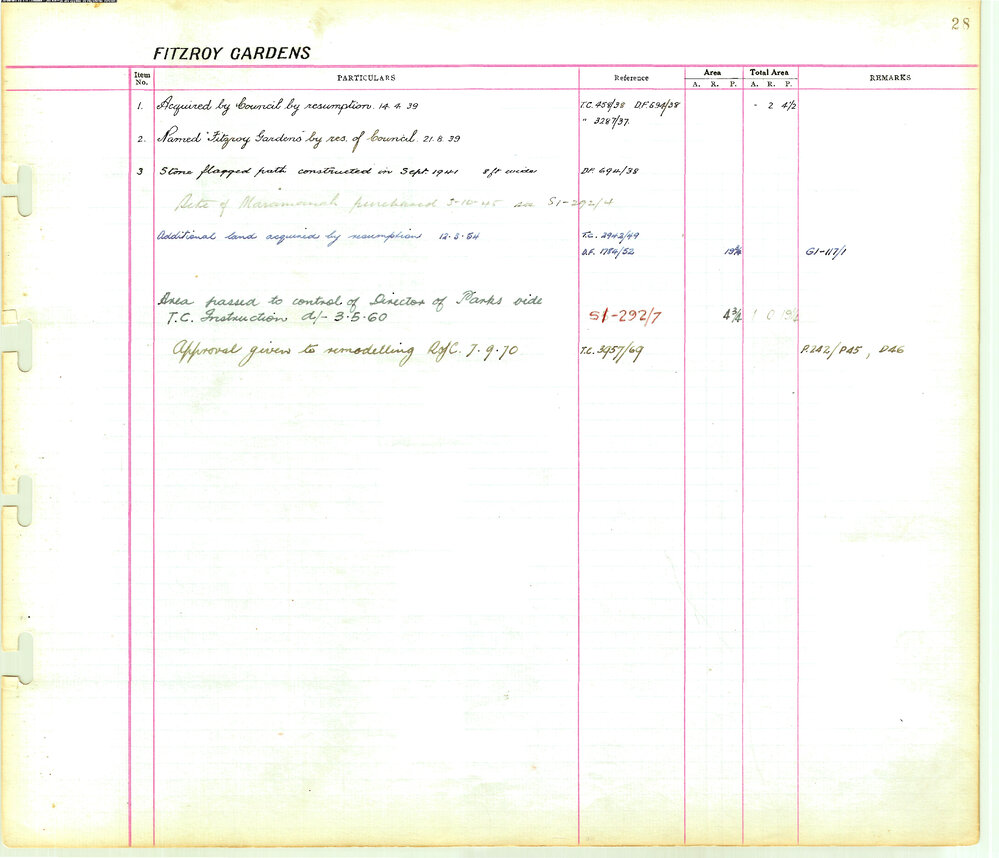 28
FITZROY GARDENS
Item No. PARTICULARS Reference Area A. R. P. Total Area A. R. P. REMARKS
1. Acquired by Council by resumption. 14.4.39 T.C. 458/38 D.F. 694/38 - 2 4/2
" 3287/37.
2. Named "Fitzroy Gardens" by res. of Council. 21.8.39
3 Stone flagged path constructed in Sept 1941 8ft wide D.F. 694/38
Site of Maramanah purchased 3-10-45 see S1-292/4
Additional land acquired by resumption 12.3.54 T.C. 2942/49
D.F. 1784/52 G1-117/1
Area passed to control of Director of Parks vide
T.C. Instruction d/- 3.5.60 S1-292/7 4¾ 1 0
Approval given to remodelling R of C. 7.9.70 T.C. 3957/69 P.242/P45, D46